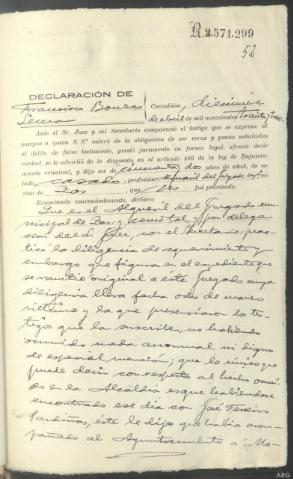 R.2.571.299
52
DECLARACIÓN DE
Francisco Bouzas
Corcubión, diecinueve
de abril de mil novecientos treinta y tres.
Ante el Sr. Juez y mi Secretario compareció el testigo que se expresa al
margen a quien S. S.ª enteró de la obligación de ser veraz y penas señaladas
al delito de falso testimonio, prestó juramento en forma legal, ofreció decir
verdad, se le advirtió de lo dispuesto en el artículo 446 de la ley de Enjuicia-
miento criminal, y dijo ser de cincuenta y dos años de edad, de es-
tado casado, profesión
cino de que No fué procesado.
Examinado convenientemente, declara:
Que es el Alguacil del Juzgado mu-
nicipal de y por delega-
ción del Sr. Juez, con el Secretario, prac-
ticó la diligencia de requerimiento y
embargo que figura en el expediente que
se remitió original a éste Juzgado cuya
diligencia lleva fecha once de marzo
último y la que presenciaron los tes-
tigos que la suscriben, no habiendo
ocurrido nada anormal ni digno
de especial mención; que lo único que
puede decir con respecto al hecho ocurri-
do en la Alcaldía es que habiéndose
encontrado ese día con José Ferreiro
Sardiñas, éste le dijo que había acom-
pañado al Ayuntamiento a Ma-
ARG